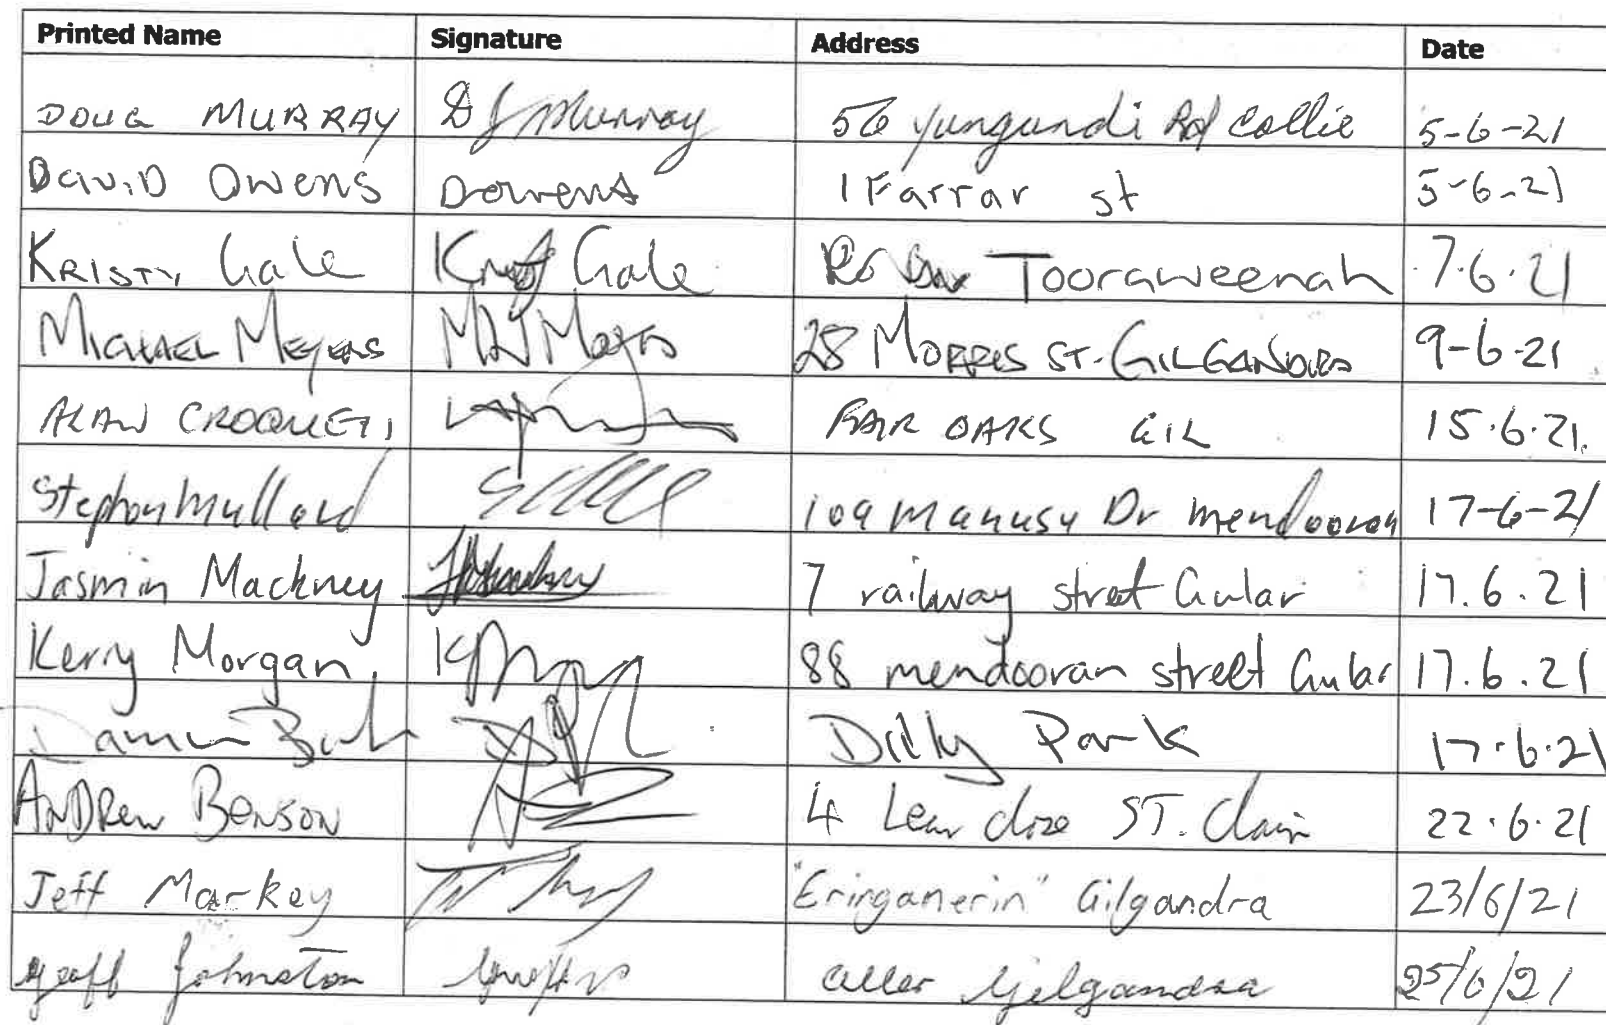 Printed Name Signature Address Date
DOUG MURRAY D J Murray 56 Yungundi Rd Collie 5-6-21
DaviD Owens Dowens 1 Farrar st 5-6-21
KRISTY Gale Gale Box Tooraweenah 7.6.21
MICHAEL MEYERS 28 MORRIS ST. GILGANDRA 9-6-21
ALAN CROQUETT FAIR OAKS GIL 15.6.21.
Stephen Mullard 109 Dr mendooran 17-6-21
Jasmin Mackney 7 railway street Gular 17.6.21
Kerry Morgan 88 mendooran street Gular 17.6.21
Park 17.6.21
ANDRew BENSON 4 close ST. Clair 22.6.21
Jeff Markey "Eringanerin" Gilgandra 23/6/21
Geoff Johnston Gilgandra 25/6/21